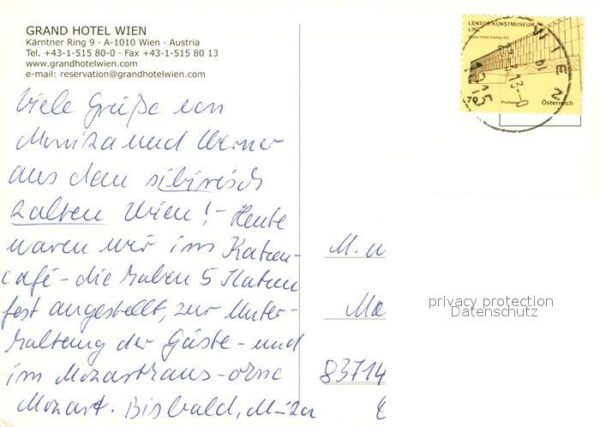 GRAND HOTEL WIEN
Kärntner Ring 9 · A-1010 Wien · Austria
Tel. +43-1-515 80-0 · Fax +43-1-515 80 13
www.grandhotelwien.com
e-mail: reservation@grandhotelwien.com
Viele Grüße von
Monika und Werner
aus dem sibirisch
kalten Wien! - Heute
waren wir im Katzen-
café - die haben 5 Katzen
fest angestellt, zur Unter-
haltung der Gäste - und
im Mozarthaus - ohne
Mozart. Bis bald,
LENTOS KUNSTMUSEUM
LINZ
70
Österreich
WIEN
1215
M. u
Ma
83714
privacy protection
Datenschutz